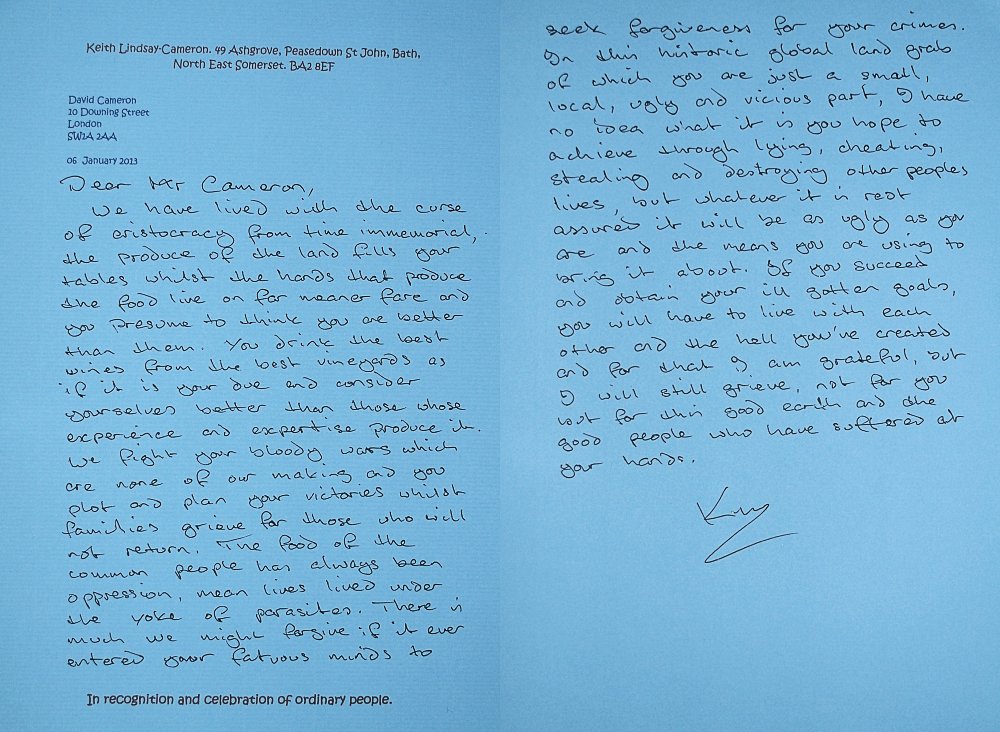 Keith Lindsay-Cameron. 49 Ashgrove, Peasedown St John, Bath,
North East Somerset. BA2 8EF
David Cameron
10 Downing Street
London
SW1A 2AA
06 January 2013
Dear Mr Cameron,
We have lived with the curse
of aristocracy from time immemorial,
the produce of the land fills your
tables whilst the hands that produce
the food live on far meaner fare and
you presume to think you are better
than them. You drink the best
wines from the best vineyards as
if it is your due and consider
yourselves better than those whose
experience and expertise produce it.
We fight your bloody wars which
are none of our making and you
plot and plan your victories whilst
families grieve for those who will
not return. The food of the
common people has always been
oppression, mean lives lived under
the yoke of parasites. There is
much we might forgive if it ever
entered your fatuous minds to
In recognition and celebration of ordinary people.
seek forgiveness for your crimes.
In this historic global land grab
of which you are just a small,
local, ugly and vicious part, I have
no idea what it is you hope to
achieve through lying, cheating,
stealing and destroying other peoples
lives, but whatever it is rest
assured it will be as ugly as you
are and the means you are using to
bring it about. If you succeed
and obtain your ill gotten goals,
you will have to live with each
other and the hell you've created
and for that I am grateful, but
I will still grieve, not for you
but for this good earth and the
good people who have suffered at
your hands.